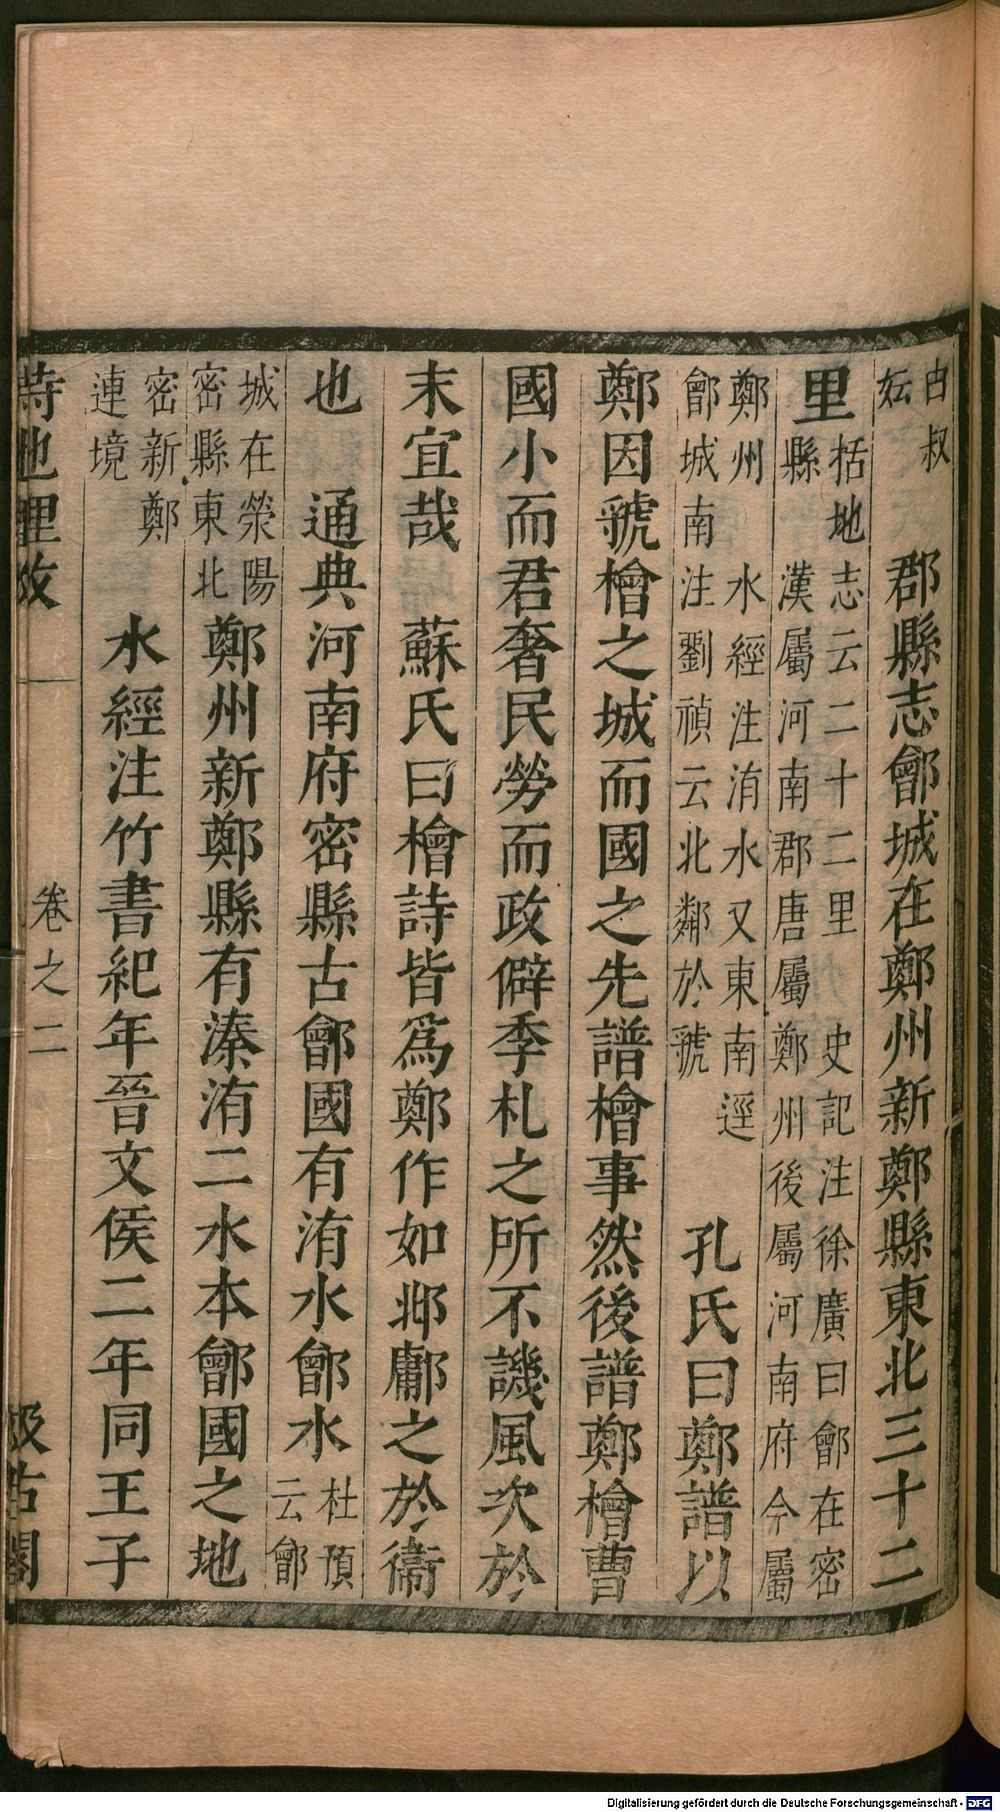 由叔
妘
郡縣志鄶城在鄭州新鄭縣東北三十二
里
括地志云二十二里 史記注徐廣曰鄶在密
縣 漢屬河南郡唐屬鄭州後屬河南府今屬
鄭州 水經注洧水又東南逕
鄶城南注劉禎云北鄰於虢
孔氏曰鄭譜以
鄭因虢檜之城而國之先譜檜事然後譜鄭檜曹
國小而君奢民勞而政僻季札之所不譏風次於
末宜哉 蘇氏曰檜詩皆爲鄭作如邶鄘之於衞
也 通典河南府密縣古鄶國有洧水鄶水
杜預
云鄶
城在滎陽
密縣東北
鄭州新鄭縣有溱洧二水本鄶國之地
密新鄭
連境
水經注竹書紀年晉文侯二年同王子
詩地理攷
卷之二
汲古閣
Digitalisierung gefördert durch die Deutsche Forschungsgemeinschaft - DFG